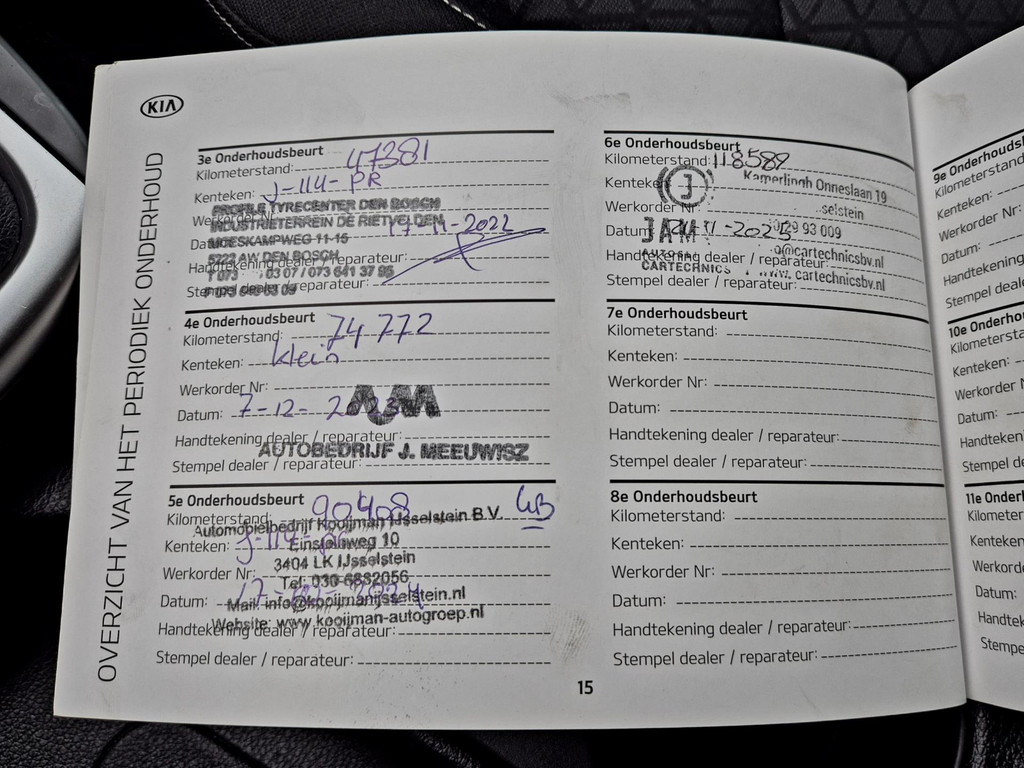 KIA
OVERZICHT VAN HET PERIODIEK ONDERHOUD
3e Onderhoudsbeurt
Kilometerstand: 47381
Kenteken: J-114-PR
TYRECENTER DEN BOSCH
Werkorder Nr:
INDUSTRIETERREIN DE RIETVELDEN
Datum: 17-11-2022
MOESKAMPWEG 11-15
5222 AW DEN BOSCH
Handtekening dealer / reparateur:
T 073 03 07 / 073 641 37 95
Stempel dealer / reparateur:
4e Onderhoudsbeurt
Kilometerstand: 74772
Kenteken: klein
Werkorder Nr:
Datum: 7-12-2023
AJM
Handtekening dealer / reparateur:
AUTOBEDRIJF J. MEEUWISZ
Stempel dealer / reparateur:
5e Onderhoudsbeurt
Kilometerstand: 90408
Automobielbedrijf Kooijman IJsselstein B.V.
Kenteken: J-114-PR
Einsteinweg 10
3404 LK IJsselstein
Werkorder Nr:
Tel: 030-6882056
Datum:
Mail: info@kooijmanijsselstein.nl
Website: www.kooijman-autogroep.nl
Handtekening dealer / reparateur:
Stempel dealer / reparateur:
6e Onderhoudsbeurt
Kilometerstand: 118589
Kenteken:
J
Kamerlingh Onneslaan 19
Werkorder Nr:
selstein
Datum: 11-2025
JAM
29 93 009
Handtekening dealer / reparateur:
@cartechnicsbv.nl
CARTECHNICS
www.cartechnicsbv.nl
Stempel dealer / reparateur:
7e Onderhoudsbeurt
Kilometerstand:
Kenteken:
Werkorder Nr:
Datum:
Handtekening dealer / reparateur:
Stempel dealer / reparateur:
8e Onderhoudsbeurt
Kilometerstand:
Kenteken:
Werkorder Nr:
Datum:
Handtekening dealer / reparateur:
Stempel dealer / reparateur:
15
9e Onderhouds
Kilometerstand
Kenteken:
Werkorder Nr:
Datum:
Handtekening
Stempel deale
10e Onderho
Kilometersta
Kenteken:
Werkorder N
Datum:
Handteken
Stempel de
11e Onderl
Kilometer
Kenteken
Werkord
Datum:
Handtek
Stempe